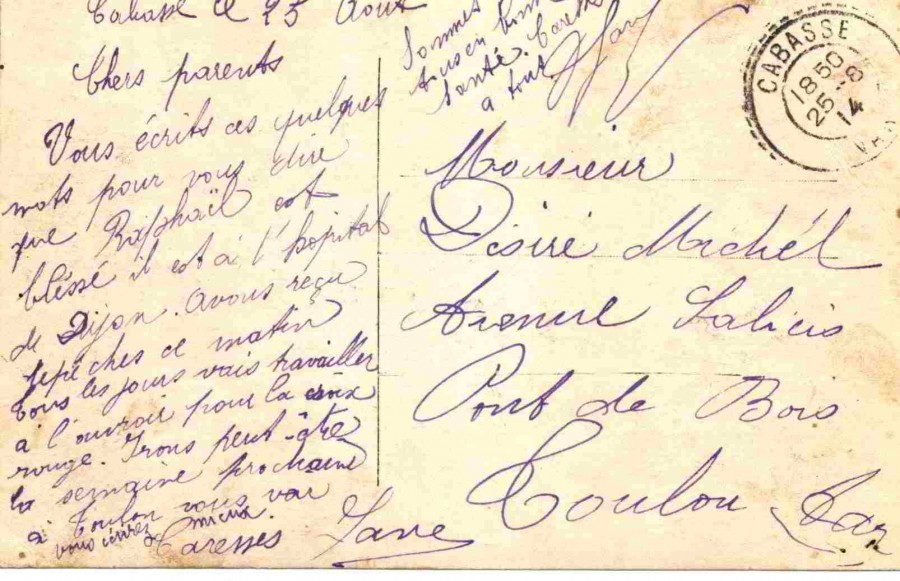 Cabasse le 25 Août
Chers parents
Vous écrits ces quelques
mots pour vous dire
que Raphaël est
bléssé il est à l'hopital
de Dijon. Avons reçu
depêches ce matin
tous les jours vais travailler
à l'ouvroir pour la croix
rouge. Irons peut-être
la semaine prochaine
à Toulon vous voir
vous écrirez mieux
Caresses Jane
Sommes
tous en bonne
santé. Caresses
a tout
CABASSE
1850
25 -8
14
VAR
Monsieur
Désiré Michél
Avenue
Pont de Bois
Toulon Var